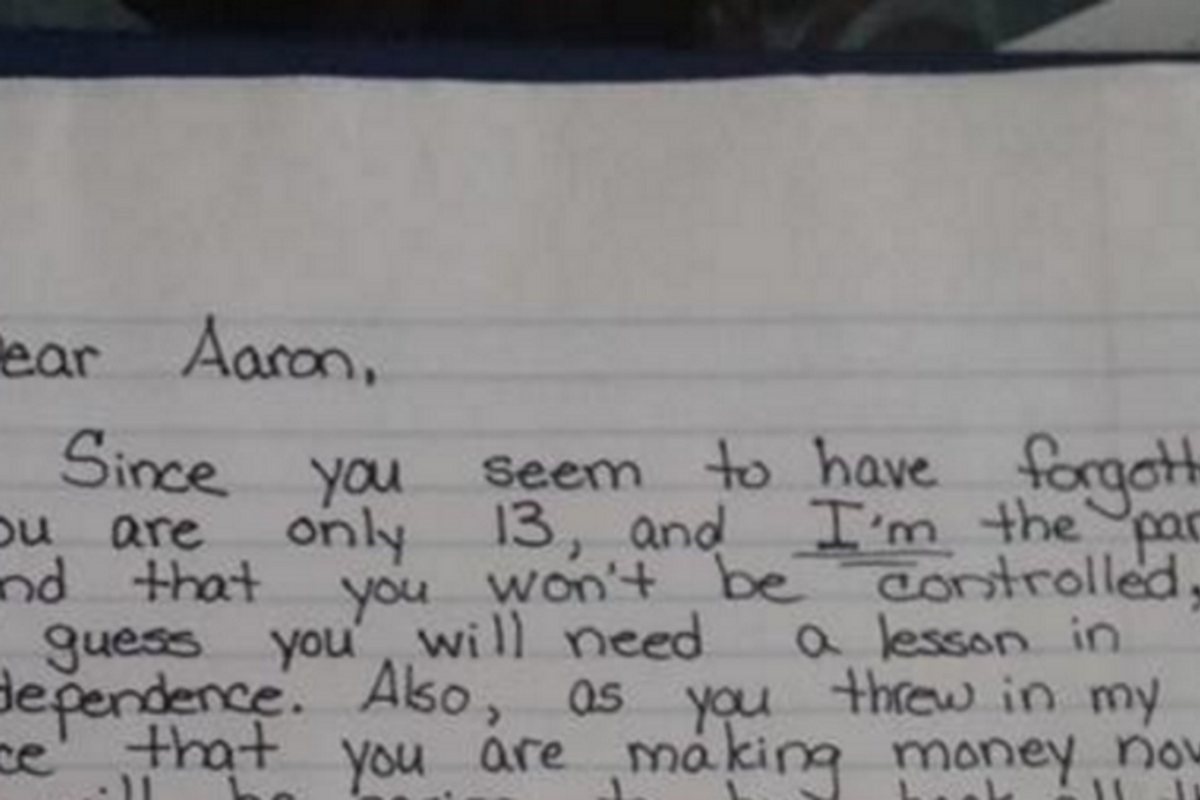 ear Aaron,
Since you seem to have forgott
ou are only 13, and I'm the par
nd that you won't be controlled,
guess you will need a lesson in
dependence. Also, as you threw in my
ce that you are making money now